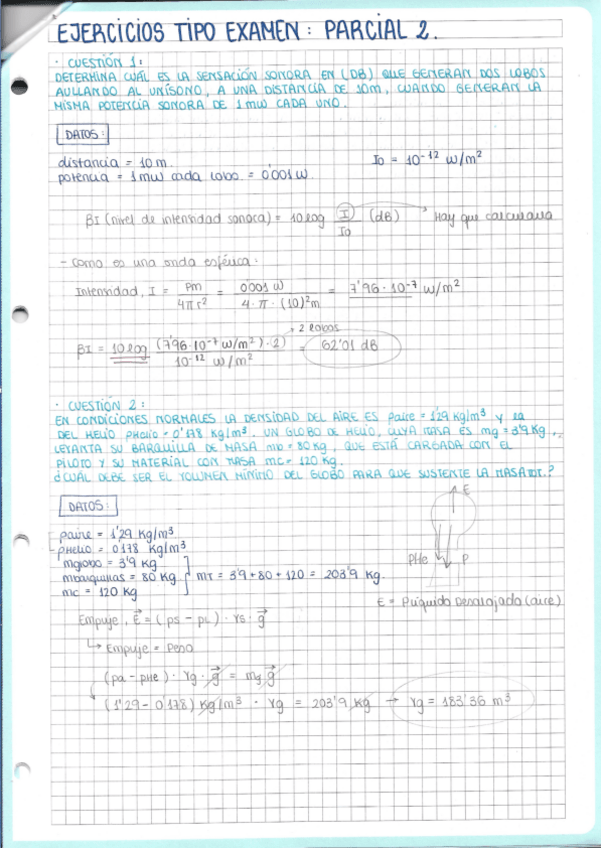 EJERCICIOS TIPO EXAMEN: PARCIAL 2.
· CUESTIÓN 1:
DETERMINA CUÁL ES LA SENSACIÓN SONORA EN (DB) QUE GENERAN DOS LOBOS
AULLANDO AL UNÍSONO, A UNA DISTANCIA DE 10m, CUANDO GENERAN LA
MISMA POTENCIA SONORA DE 1mW CADA UNO.
DATOS:
distancia = 10 m.
Io = 10⁻¹² W/m²
potencia = 1mW cada lobo. = 0'001 W.
βI (nivel de intensidad sonora) = 10 log I/Io (dB) → Hay que calcularla
- Como es una onda esférica:
Intensidad, I = Pm/4πr² = 0'001 W/4·π·(10)²m = 7'96·10⁻⁷ W/m²
→ 2 lobos
βI = 10 log (7'96·10⁻⁷ W/m²)·2)/10⁻¹² W/m² = 62'01 dB
· CUESTIÓN 2:
EN CONDICIONES NORMALES LA DENSIDAD DEL AIRE ES ρaire = 1'29 Kg/m³ y la
DEL HELIO ρHelio = 0'178 Kg/m³. UN GLOBO DE HELIO, CUYA MASA ES mg = 3'9 Kg,
LEVANTA SU BARQUILLA DE MASA mb = 80 Kg, QUE ESTÁ CARGADA CON EL
PILOTO Y SU MATERIAL CON MASA mc = 120 Kg.
¿CUÁL DEBE SER EL VOLUMEN MÍNIMO DEL GLOBO PARA QUE SUSTENTE LA MASA TOT.?
E
DATOS:
ρaire = 1'29 Kg/m³
ρHelio = 0'178 Kg/m³
mglobo = 3'9 Kg
PHe P
mbarquillas = 80 Kg mT = 3'9 + 80 + 120 = 203'9 Kg.
mc = 120 Kg
E = Plíquido Desalojado (aire)
Empuje, E = (ρs - ρL) · Vs · g
↳ Empuje = Peso
(ρa - ρHe) · Vg · g = mg g
(1'29 - 0'178) Kg/m³ · Vg = 203'9 Kg → Vg = 183'36 m³